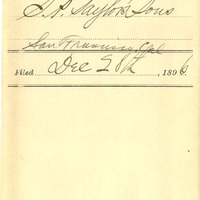 S. A. Taylor Sons
San Francisco, Cal
Filed Dec 28th, 1896